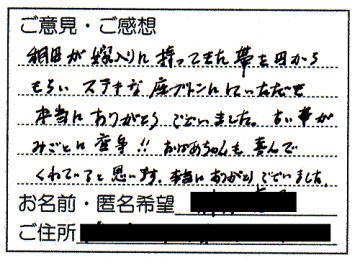 ご意見・ご感想
祖母が嫁入りに持ってきた帯を母から
もらい ステキな座ブトンにしていただき
本当にありがとうございました。古い帯が
みごとに変身!! おばあちゃんも喜んで
くれていると思います。本当にありがとうございました。
お名前・匿名希望
ご住所